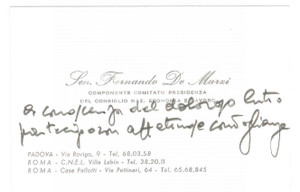 Sen. Fernando De Marzi
COMPONENTE COMITATO PRESIDENZA
DEL CONSIGLIO NAZ. ECONOMIA E LAVORO
a conoscenza del doloroso lutto
partecipo con affettuose condoglianze
PADOVA - Via Rovigo, 9 - Tel. 68.03.58
ROMA - C.N.E.L. Ville Lubin - Tel. 38.20.11
ROMA - Casa Pallotti - Via Pettinari, 64 - Tel. 65.68.845